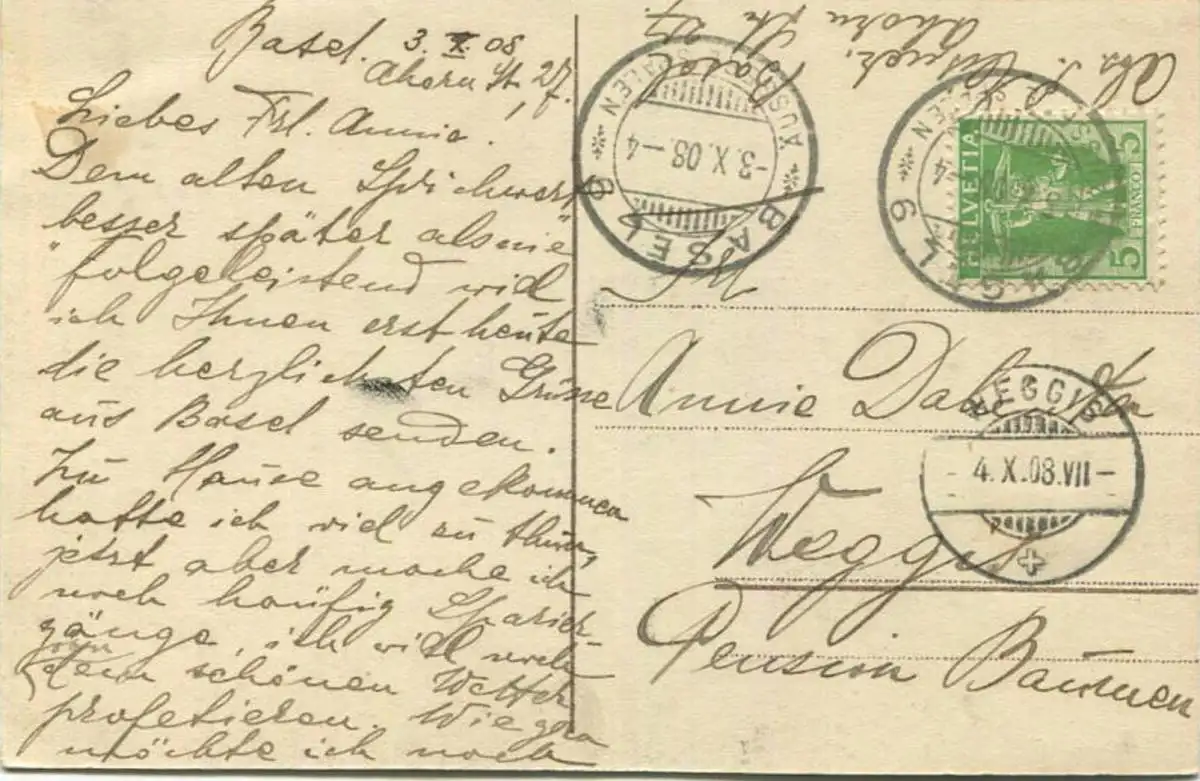 Basel. 3. X. 08
Ahorn Str. 27.
Liebes Frl. Annie.
Dem alten Sprichwort
besser später als nie
folgeleistend will
ich Ihnen erst heute
die herzlichsten Grüsse
aus Basel senden.
Zu Hause angekommen
hatte ich viel zu thun,
jetzt aber mache ich
noch häufig Spazier-
gänge, ich will noch
vom
dem schönen Wetter
profetieren. Wie gern
möchte ich noch
Abs.
Ahorn Str. 27.
Basel
BASEL 6
AUSD. ZE. STALEN
-3.X.08-4
BASEL 6
HELVETIA
5 FRANCO 5
Frl.
Annie
Weggis
Pension Baumen
WEGGIS
-4.X.08.VII-